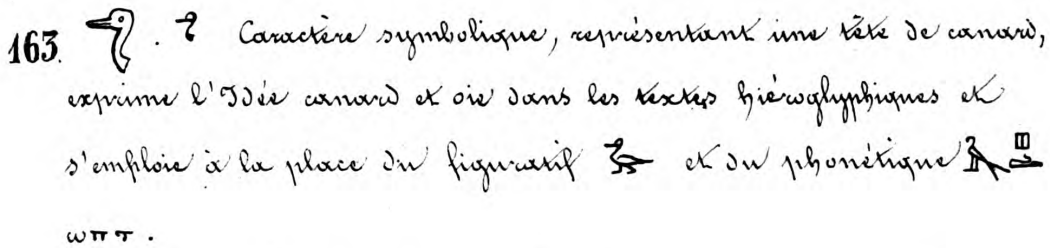 163. 𓅿 . 𓅿 Caractère symbolique, représentant une tête de canard,
exprime l'Idée canard et oie dans les textes hiéroglyphiques et
s'emploie à la place du figuratif et du phonétique
ωπτ .